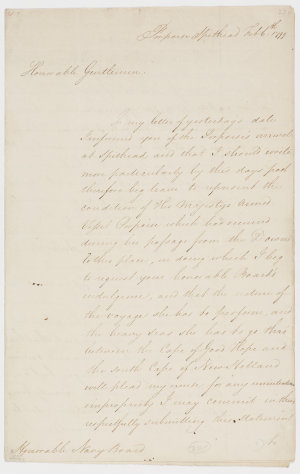 Porpoise Spithead Feb 6th 1799
Honorable Gentlemen.
In my letter of yesterdays date
I informed you of the Porpoises arrival
at Spithead and that I should write
more particularly by this days post
therefore beg leave to represent the
condition of His Majestys armd
Vessel Porpoise which had occurred
during her passage from the Downs
to this place, in doing which I beg
to request your honorable Boards
indulgence, and that the nature of
the voyage she has to perform, and
the heavy seas she has to go thro
between the Cape of Good Hope and
the South Cape of New Holland
will plead my excuse for any
impropriety I may commit in thus
respectfully submitting this statement
Honorable Navy Board